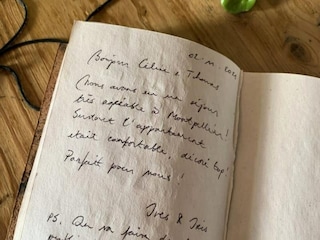 Bonjour Celine & Thomas
Nous avons eu un séjour
très agréable à Montpellier !
Surtout l'appartement
etait confortable, décoré top !
Parfait pour nous !
Ives & Iris
PS. On va faire de